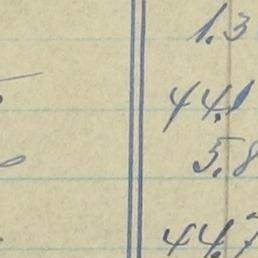 1.3
44.1
5.8
44.7